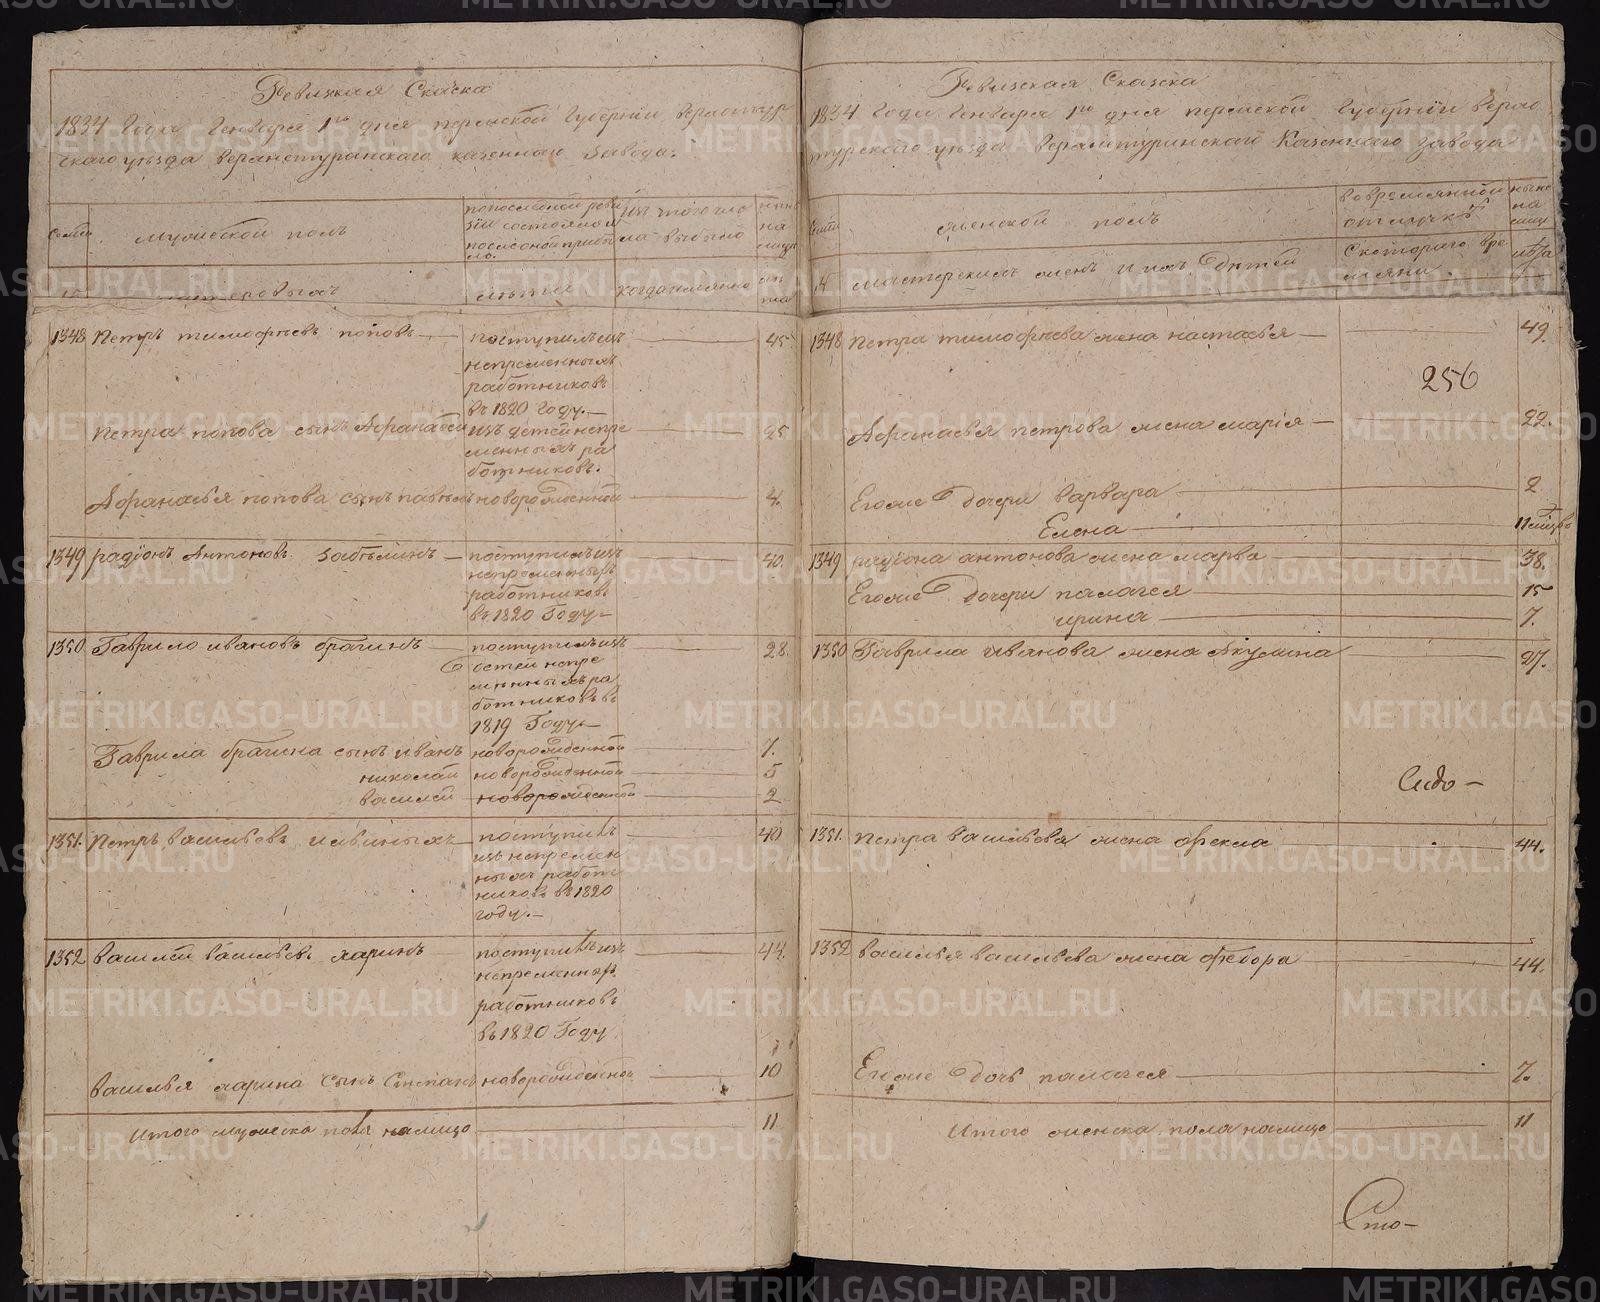 Ревизкая Скаска
1834 Года Генваря 1го дня пермской Губернiи верхотур
скаго уѣзда верхнетуринскаго казеннаго Завода.
Семьи
мужеской полъ
по последной реви
зiи состояло и
после оной прибы
ло.
изъ того чис
ла выбыло
нынѣ
на
лицо
№
мастеровыхъ
лѣты
когда именно
лѣ
та
1348 Петръ тимофѣевъ поповъ — поступилъ изъ — 45.
непременныхъ
работниковъ
въ 1820 году. —
Петра попова сынъ Афанасей изъ детей непре — 25
менныхъ ра
ботниковъ.
Афанасья попова сынъ павелъ новорожденной — 4.
1349 радiонъ Антоновъ Забѣлинъ — поступилъ изъ — 40.
непременныхъ
работниковъ
въ 1820 Году —
1350 Гаврило ивановъ брагинъ — поступилъ изъ — 28.
детей непре
менныхъ ра
ботниковъ въ
1819 Году —
Гаврила брагина сынъ иванъ новорожденной — 7.
николай новорожденной — 5
василей новорожденной — 2
1351. Петръ васильевъ ильиныхъ — поступилъ — 40
изъ непремен
ныхъ работ
никовъ въ 1820
году. —
1352 василей васильевъ ларинъ поступилъ изъ — 44.
непременныхъ
работниковъ
въ 1820 Году
василья ларина сынъ Степанъ новорожденной — 10
Итого мужеска пола налицо — 11
Ревизская Сказка
1834 Года Генваря 1го дня пермской Губернiи верхо
турскаго уѣзда верхнетуринскаго Казеннаго завода
Семьи
женской полъ
во временной
отлучкѣ
ныне
на
лицо
№
мастерскихъ женъ и ихъ детей
Скотораго вре
мяни.
лѣта
1348 Петра тимофѣева жена настасья — 49.
256
Афанасья петрова жена марiя — 22.
Егоже дочери варвара — 2
Елена — 11 месецов
1349 радiона антонова жена марва — 38.
Егоже дочери палагея — 15
ирина — 7.
1350 Гаврила Иванова жена Акулина — 27.
Сидо —
1351. Петра васильева жена фекла — 44.
1352 василья васильева жена федора — 44.
Егоже дочь палагея — 7.
Итого женска пола налицо — 11
Сто —
METRIKI.GASO-URAL.RU